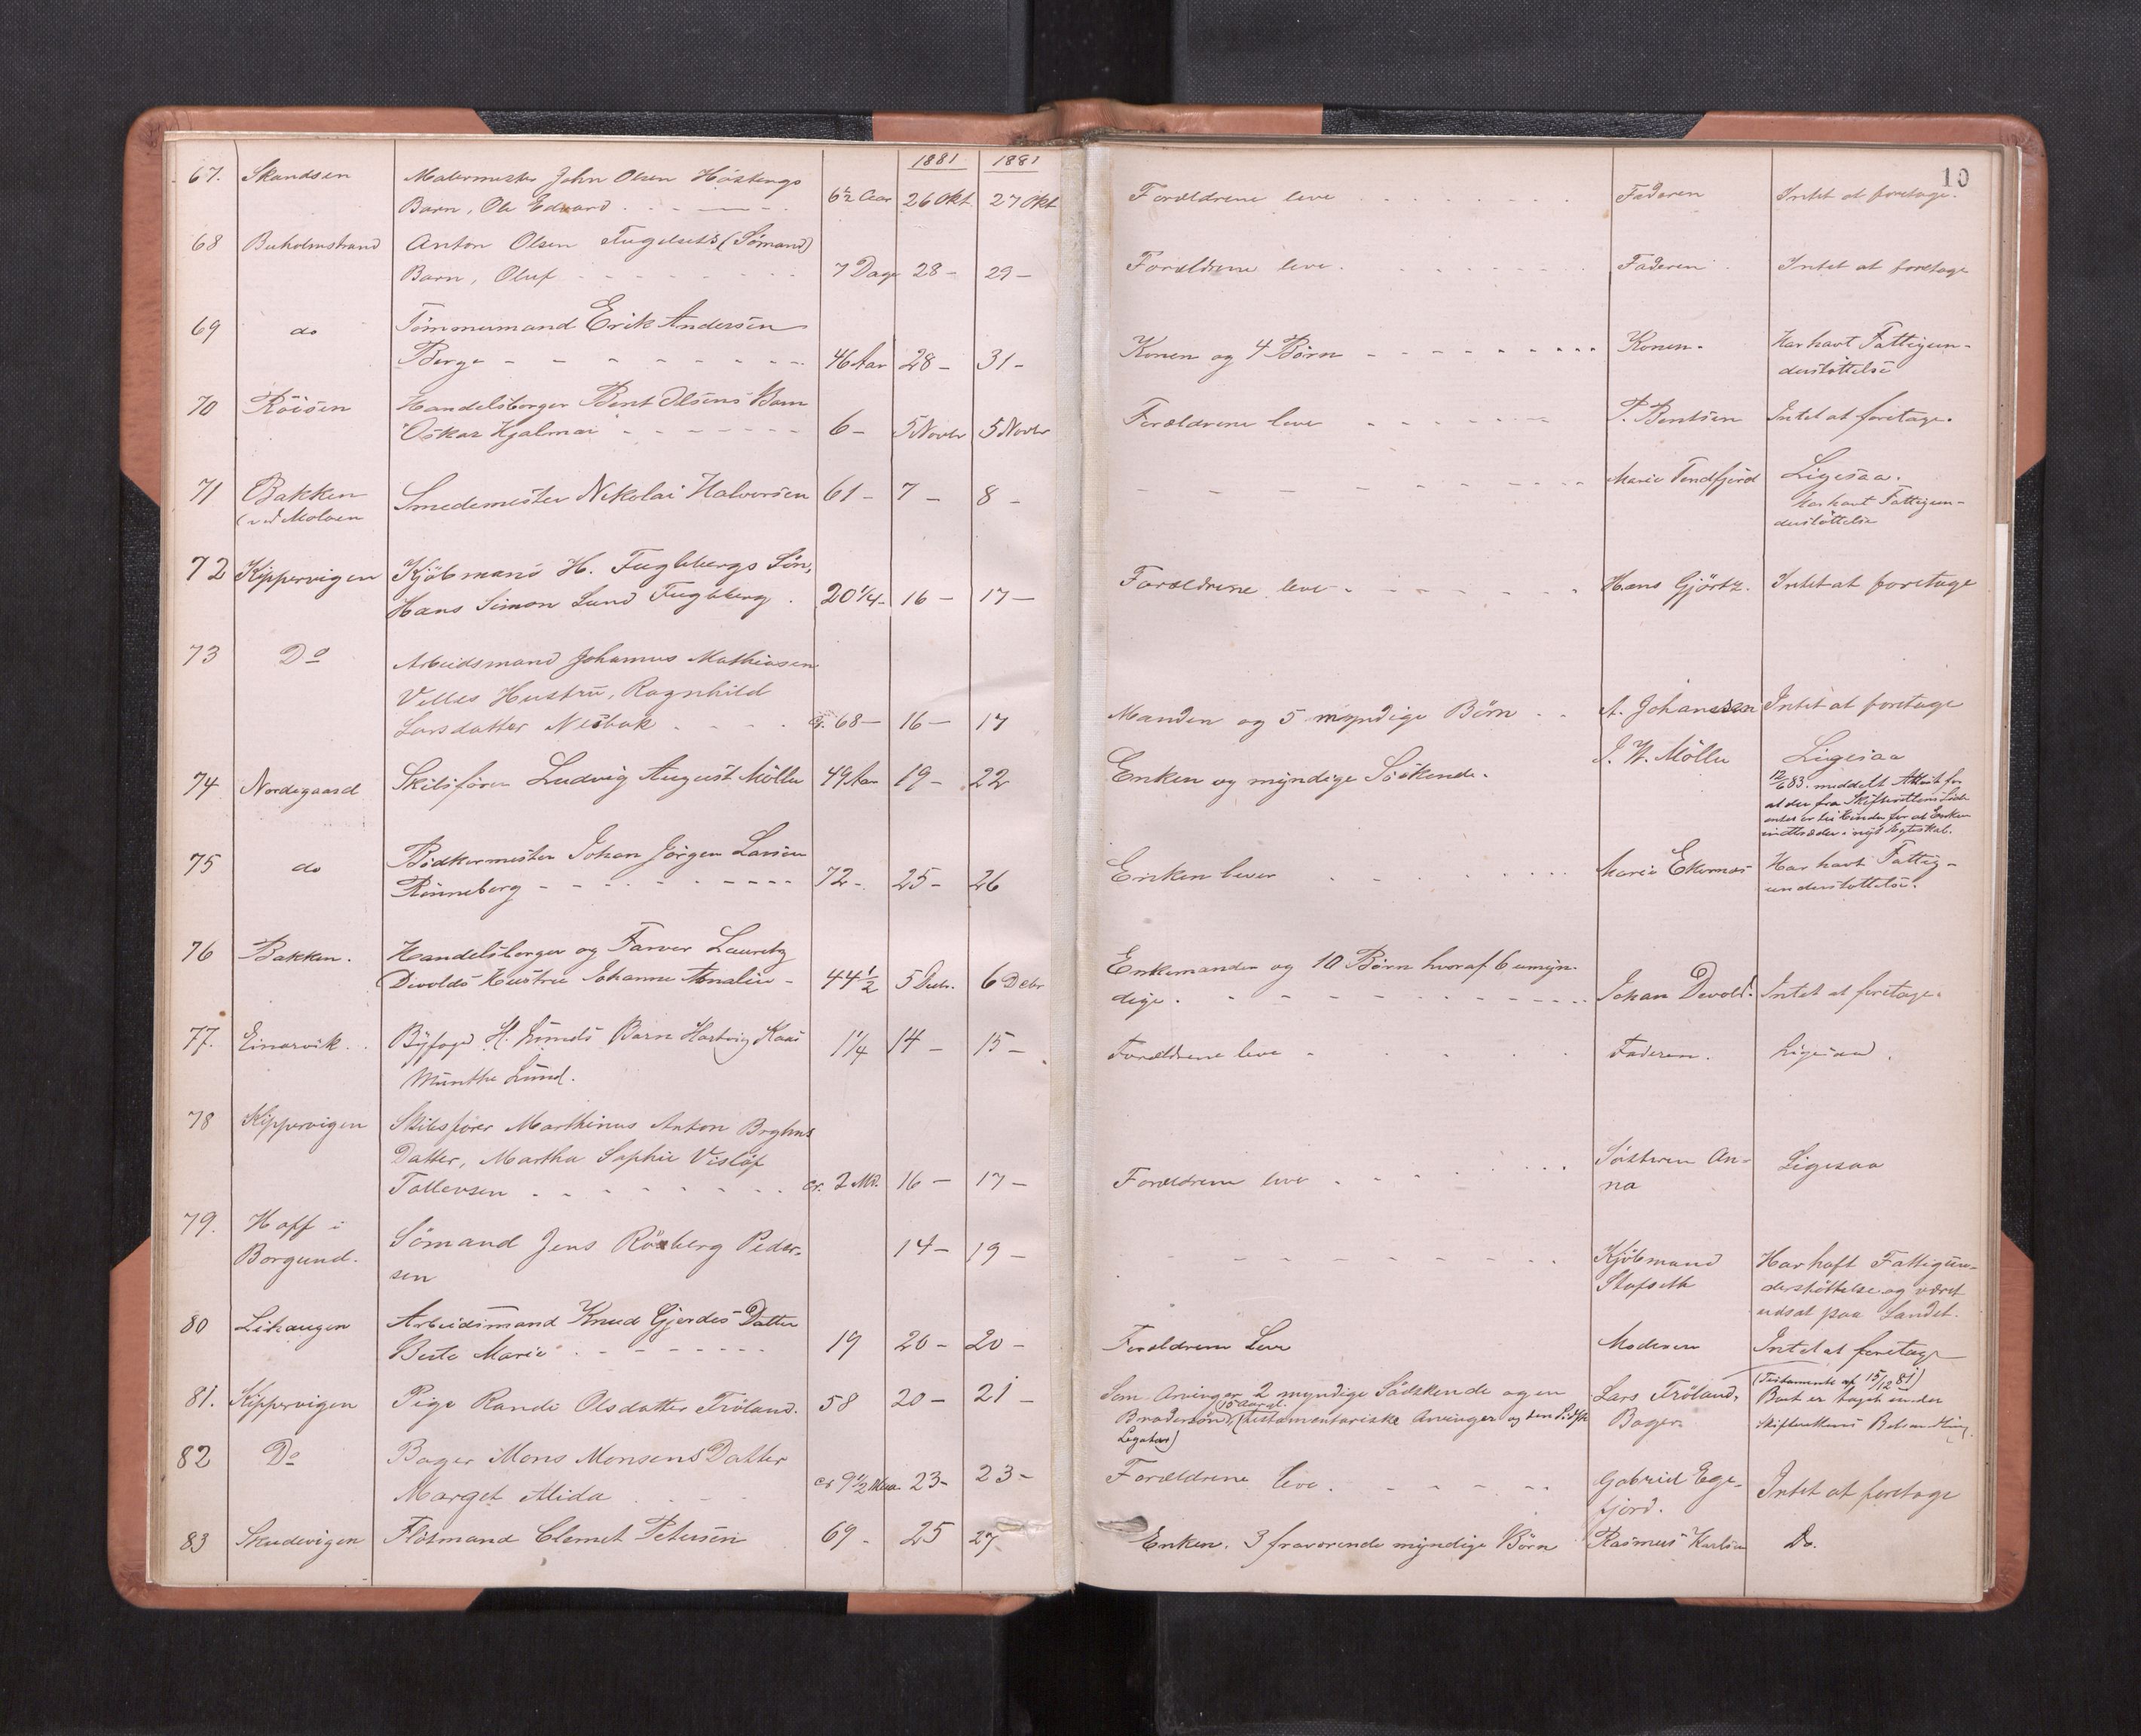 1881 1881 10
67. Skandsen Malermester John Olsen Hästengs
Barn, Ole Edvard 6½ Aar 26 Okt. 27 Okt Forældrene leve Faderen Intet at foretage.
68 Buholmstrand Anton Olsen Fugelsets (Sömand)
Barn, Oluf 7 Dage 28 - 29 - Forældrene leve. Faderen Intet at foretage
69 do Tömmermand Erik Andersen
Berge 46 Aar 28 - 31 - Konen og 4 Börn Konen. Har havt Fattigun-
derstöttelse
70 Röisen Handelsborger Bent Olsens Barn
Oskar Hjalmar 6 - 5 Novbr 5 Novbr Forældrene lever P. Bentsen Intet at foretage.
71 Bakken Smedemester Nikolai Halvorsen 61 - 7 - 8 - Marie Tendfjord Ligesaa.
(ved Moloen Har havt Fattigun-
derstöttelse
72 Kippervigen Kjöbmand H. Fuglebergs Sön,
Hans Simon Lund Fugleberg. 20 1/4 - 16 - 17 - Forældrene leve Hans Gjörtz. Intet at foretage
73 Do Arbeidsmand Johannes Mathiasen
Velles Hustru, Ragnhild
Larsdatter Nesbak cr. 68 - 16 - 17 Manden og 5 myndige Börn A. Johansen Intet at foretage
74 Nordregaard Skibsförer Ludvig August Möller 49 Aar 19 - 22 Enken og myndige Söskende. J. W. Möller Ligesaa
12/6 83. meddelt Attest for
at der fra Skifterettens Side
intet er til Hinder for at Enken
indtræder i nyt Egteskab.
75 do Bödkermester Johan Jörgen Larsen
Rönneberg 72 - 25 - 26 Enken lever Marie Ekornæs Har havt Fattig-
understöttelse.
76 Bakken. Handelsborger og Farver Lauritz
Devolds Hustru Johanne Amalie - 44 ½ 5 Decbr. 6 Decbr Enkemanden og 10 Börn hvoraf 6 umyn-
dige. Johan Devold. Intet at foretage.
77. Einarvik. Byfoged H. Lunds Barn Hartvig Kaas
Munthe Lund. 1 1/4 14 - 15 - Forældrene leve Faderen. Ligesaa.
78 Kippervigen Skibsförer Marthinus Anton Bryhns
Datter, Martha Sophie Vislöf
Tollevsen cr. 2 Md. 16 - 17 - Forældrene leve Sösteren An-
na Ligesaa
79. Hoff i
Borgund. Sömand Jens Röxberg Peder-
sen 14 - 19 - Kjöbmand
Stafseth Har haft Fattigun-
derstöttelse og været
udsat paa Landet.
80 Lihaugen Arbeidsmand Knud Gjerdes Datter
Berte Marie 19 20 - 20 - Forældrene Leve Moderen Intet at foretage
81. Kippervigen Pige Randi Olsdatter Fröland. 58 20 - 21 - Som Arvinger 2 myndige Södskende og en
Brodersön 15 Aar gl. (testamentariske Arvinger og den Sidste
Legatar) Lars Fröland,
Bager. (Testamente af 15/12 81)
Boet er taget under
Skifterettens Behandling.
82 Do Bager Mons Monsens Datter
Marget Alida cr 9½ Maa. 23 - 23 - Forældrene leve. Gabriel Ege-
fjord. Intet at foretage
83 Skudevigen Flösmand Clemet Petersen 69 - 25 27 Enken. 3 fraværende myndige Börn Rasmus Karlsen Do.